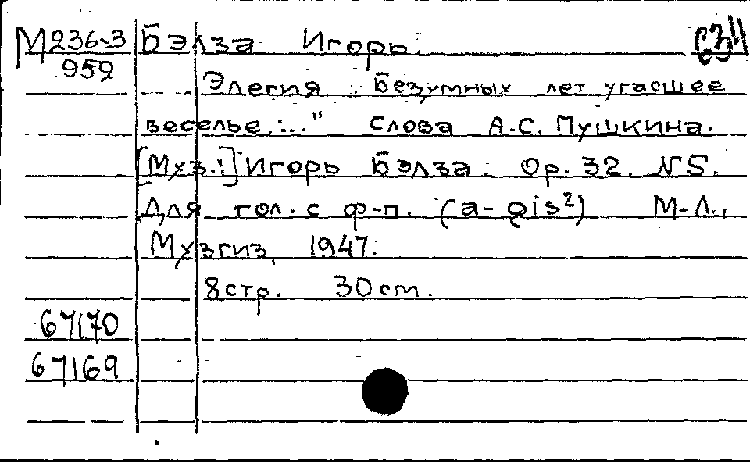 М236-3 Бэлза Игорь.
959
Элегия „Безумных лет угасшее
веселье..." Слова А.С. Пушкина.
[Муз.:] Игорь Бэлза. Ор. 32. N5.
Для гол. с ф-п. (a-gis²) М-Л.,
Музгиз, 1947.
8 стр. 30 cm.
67170
67169